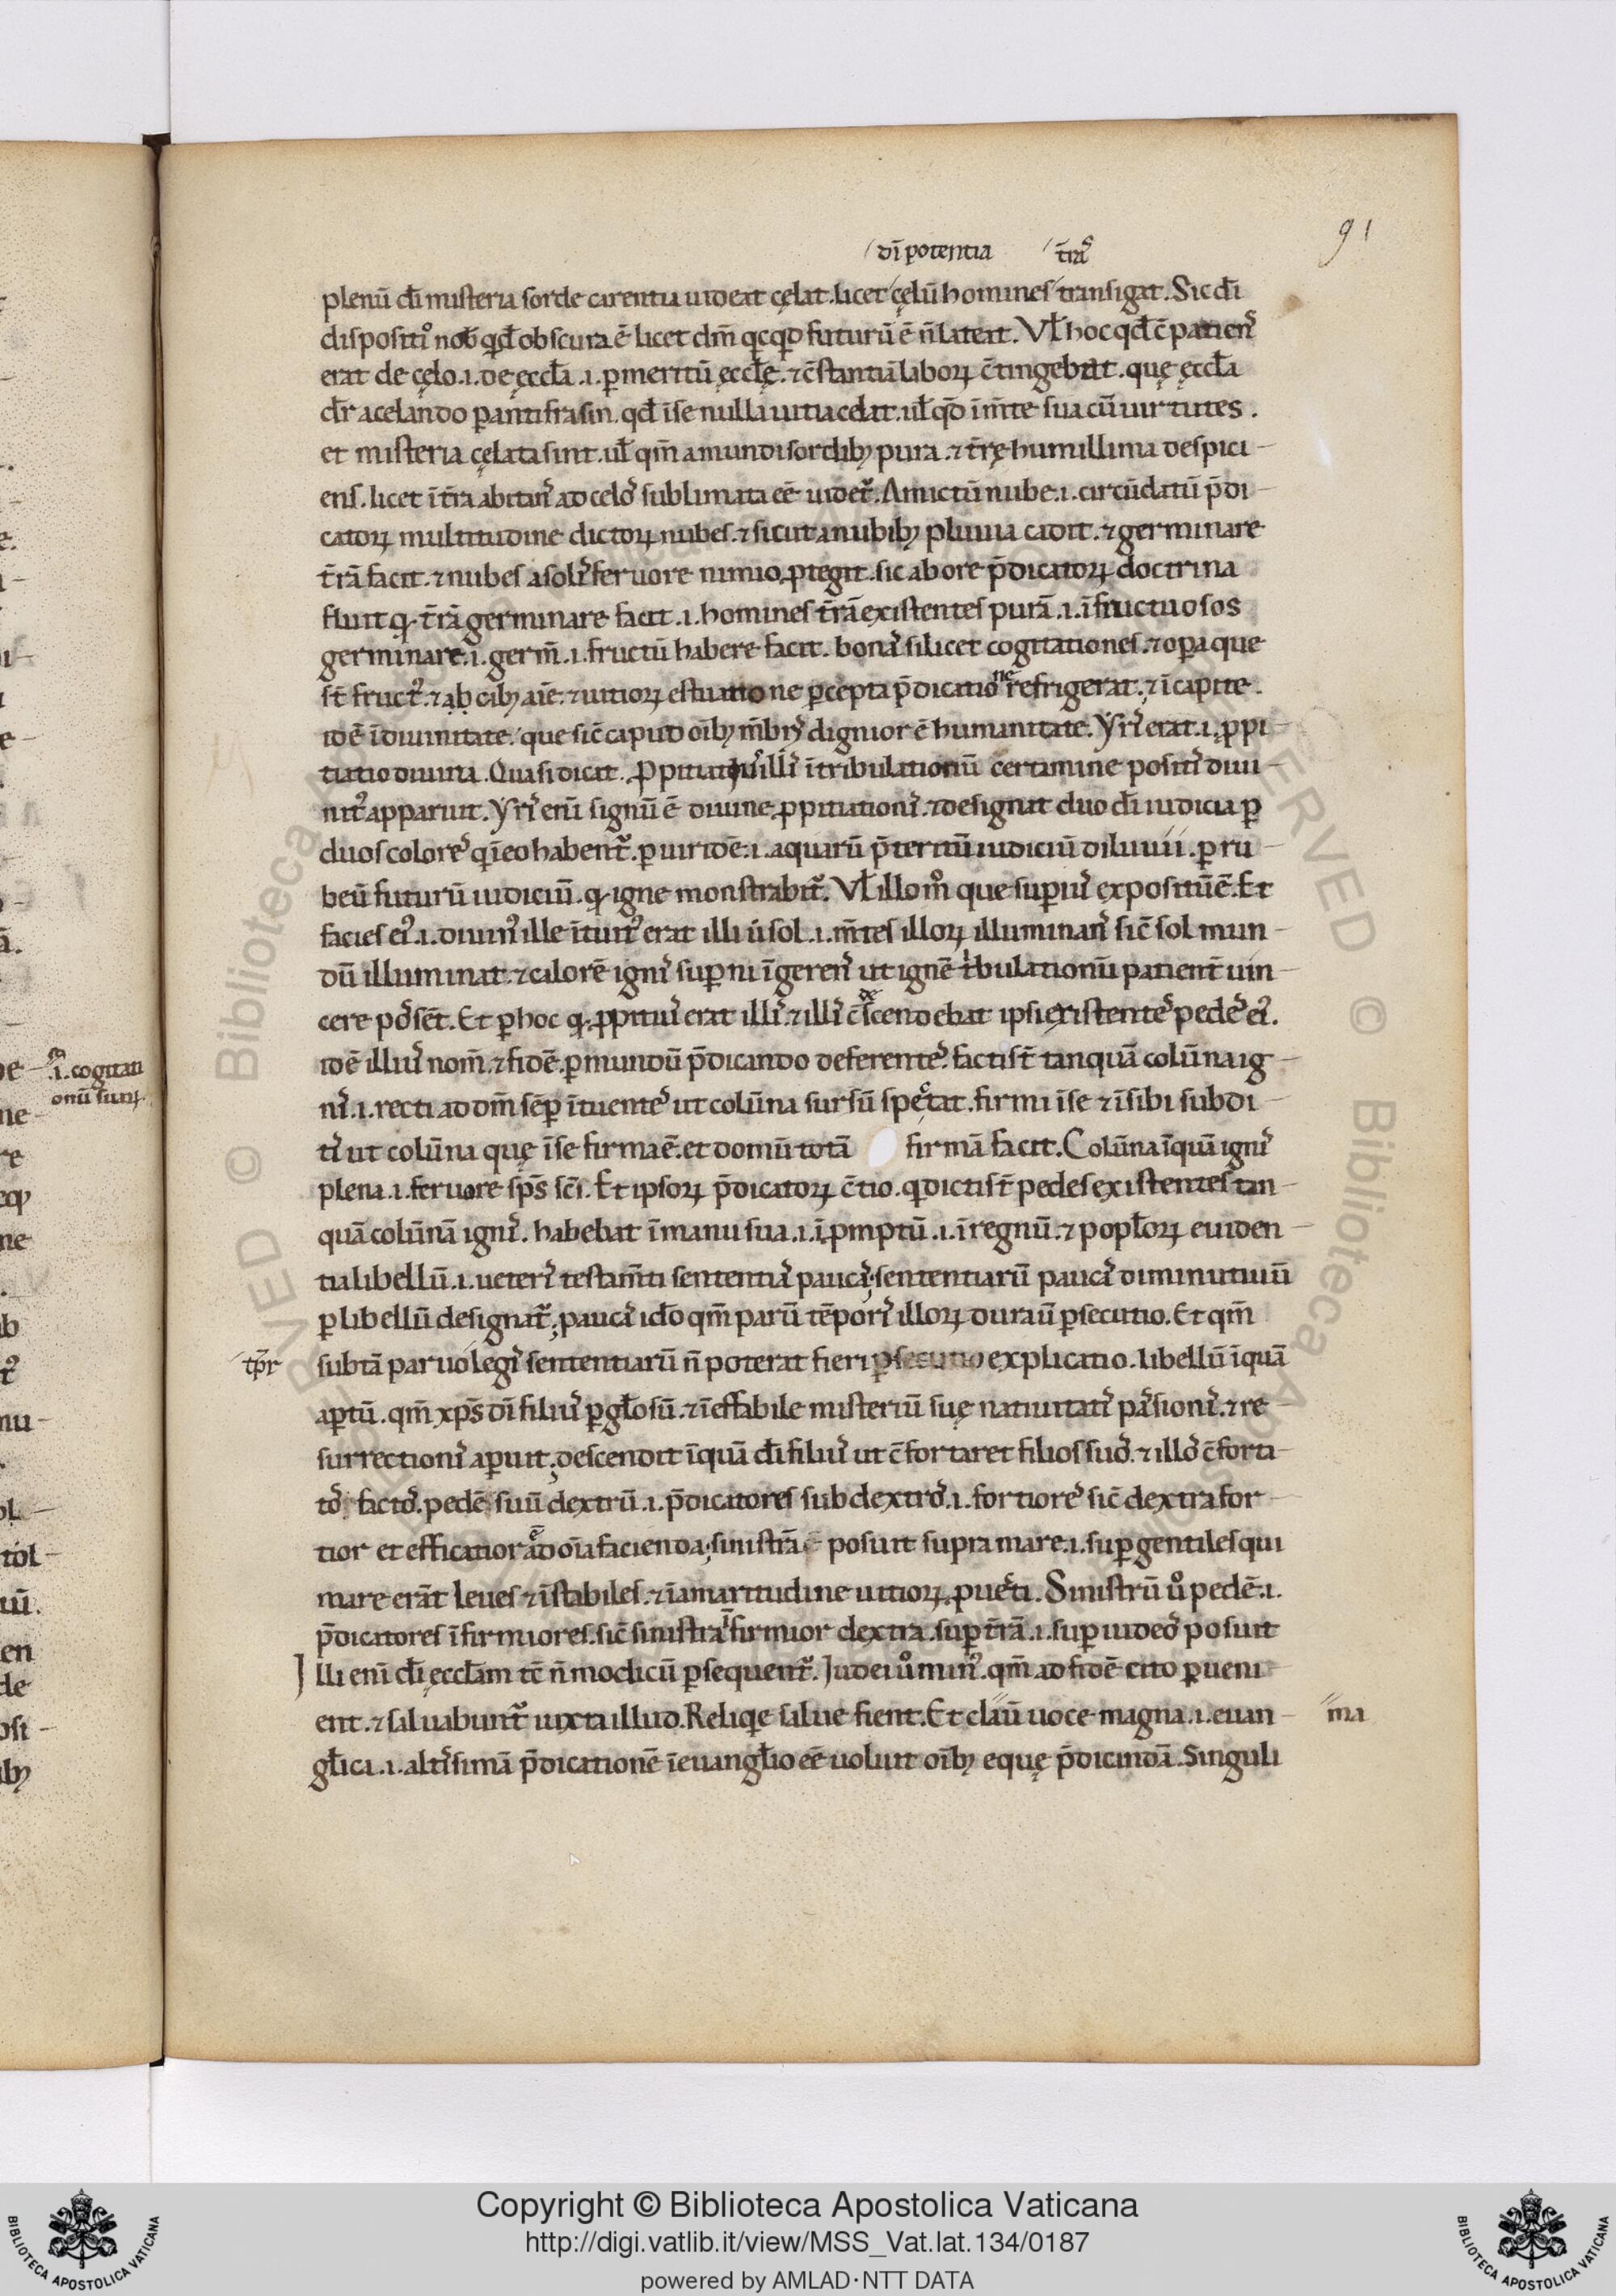 91
dī potentia t̄raˢ
plenū dī misteria sorde carentia uideat cęlat. licet cęlū homines transigat. Sic dī
dispositı͛ nob̄ qd̄ obscura ē licet dm̄ qcqd futurū ē n̄ lateat. Vl̄ hoc qd̄ c̄patien͛
erat de cęlo .i. de ęccl̄a .i. p̱ meritū ęccl̄ę. ⁊ c̄stantiā laboꝝ c̄tingebat. quę ęccl̄a
dr̄ a celando p̱ antifrasin. qd̄ īse nulla uitia celat. ul̄ qd̄ īm̄te sua cū uirtutes.
et misteria cęlata sint. ul̄ qm̄ a mundi sordibꝫ pura. ⁊ t̄rę humillima despici-
ens. licet ī t̄ra abitan͛ ad celo͛ sublimata eē uidet͛. Amictū nube .i. circūdatū p̄di-
catoꝝ multitudine dictoꝝ nubes. ⁊ sicut a nubibꝫ pluuia cadit. ⁊ germinare
t̄rā facit. ⁊ nubes a soli͛ feruore nimio ꝓtegit. sic ab ore p̄dicatoꝝ doctrina
fluit q̄ t̄rā germinare facit .i. homines t̄rā existentes purā .i. īfructuosos
germinare .i. germ̄ .i. fructū habere facit. bona͛ silicet cogitationes. ⁊ oꝑa que
st̄ fruct͛. ⁊ ab cibꝫ aīe. ⁊ uitioꝝ estuatione ꝑcepta p̄dicatione refrigerat. ⁊ ī capite.
idē ī diuinitate. que sic̄ caput oībꝫ m̄bri͛ dignior ē humanitate. Yri͛ erat .i. ꝓpi-
tiatio diuina. Quasi dicat. Ꝓpitiatiu͛ illi͛ ī tribulationū certamine positi͛ diui-
nit͛ apparuit. Yri͛ enī signū ē diuine ꝓpitiationi͛. ⁊ designat duo dī iudicia ꝑ
duos colore͛ q īeo habent͛. ꝑ uiridē .i. aquarū p̄teritū iudiciū diluuii. ꝑ ru-
beū futurū iudiciū. q̄ igne monstrabit͛. Vl̄ illo m͛ que suꝑiu͛ expositū ē. Et
facies ei͛ .i. diuin͛ ille ītuit͛ erat illi ut́ sol .i. m̄tes illoꝝ illuminan͛ sic̄ sol mun-
dū illuminat. ⁊ calorē igni͛ suꝑni īgeren͛ ut ignē tⁱbulationū patient̄ uin-
cere po͛sēt. Et ꝑ hoc q̄ ꝓpitiu͛ erat illi͛. ⁊ illi͛ c̄descendebat ipsi existente͛ pede͛ ei͛.
idē illiu͛ nom̄. ⁊ fidē. ꝑ mundū p̄dicando deferente͛. facti st̄ tanquā colūna ig-
ni͛ .i. recti ad dm̄ sēꝑ ītuente͛ ut colūna sursū spectat. firmi īse ⁊ īsibi subdi-
ti͛ ut colūna quę īse firma ē. et domū totā firmā facit. Colūna īquā igni͛
plena .i. feruore sp̄s sc̄i. Et ipsoꝝ p̄dicatoꝝ c̄tio. q dicti st̄ pedes existentes tan-
quā colūnā igni͛. habebat ī manu sua .i. ī ꝓmptū .i. ī regnū. ⁊ popl̄oꝝ euiden-
tia libellū .i. ueteri͛ testam̄ti sententia͛ pauca͛; sententiarū pauca͛ diminutiuū
ꝑ libellū designat͛; pauca͛ id̄o qm̄ parū tēpori͛ illoꝝ durau ꝑsecutio. Et qm̄
tp̄r
sub tā paruo legi͛ sententiarū n̄ poterat fieri ꝑsecutio explicatio. libellū īquā
aꝑtū. qm̄ xp̄s dī filiu͛ ꝑ gl̄osū. ⁊ īeffabile misteriū suę natiuitati͛ pa͛sioni͛. ⁊ re-
surrectioni͛ aꝑuit; descendit īquā dī filiu͛ ut c̄fortaret filios suo͛. ⁊ illo͛ c̄forta-
to͛ facto͛. pedē suū dextrū .i. p̄dicatores sub dextro͛ .i. fortiore͛ sic̄ dextra for-
tior et efficatior ē ad oīa facienda; sinistrā posuit supra mare .i. suꝑ gentiles qui
mare erāt leues ⁊ īstabiles. ⁊ ī amaritudine uitioꝝ ꝓuecti. Sinistrū u͛ pedē .i.
p̄dicatores īfirmiores. sic̄ sinistra īfirmior dextra. suꝑ t̄rā .i. suꝑ iudeo͛ posuit
Illi enī dī ęccl̄am tc̄ n̄ modicū ꝑsequent͛. Iudei u͛ min͛. qm̄ ad fidē cito ꝑueni-
ent. ⁊ saluabunt͛ iuxta illud. Reliqe salue fient. Et claū uoce magna .i. euan- ma
gl̄ica .i. alti͛simā p̄dicationē ī euangl̄io eē uoluit oībꝫ equę p̄dicandā. Singuli
.i. cogitati
onū suaꝝ
Copyright © Biblioteca Apostolica Vaticana
http://digi.vatlib.it/view/MSS_Vat.lat.134/0187
powered by AMLAD·NTT DATA